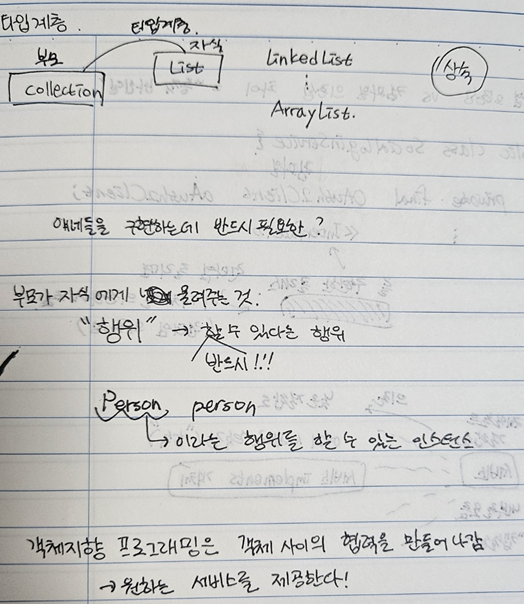 타입계층.
타입계층.
부모 자식
Collection List LinkedList "상속"
ArrayList.
얘네들을 구현하는데 반드시 필요한?
부모가 자식에게 물려주는 것.
"행위" → 할 수 있다는 행위
반드시!!!
Person person
→ 이라는 행위를 할 수 있는 인스턴스
객체지향 프로그래밍은 객체 사이의 협력을 만들어 나감
→ 원하는 서비스를 제공한다!